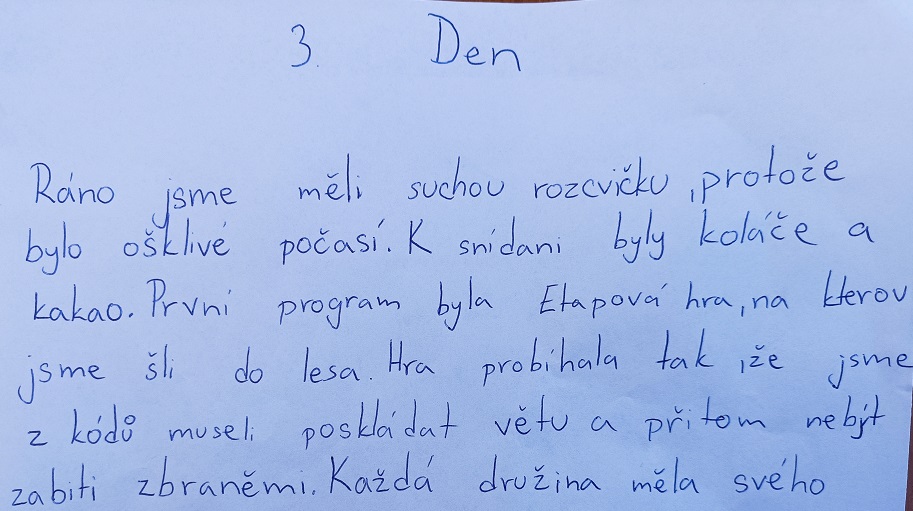 3. Den
Ráno jsme měli suchou rozcvičku, protože
bylo ošklivé počasí. K snídani byly koláče a
kakao. První program byla Etapová hra, na kterou
jsme šli do lesa. Hra probíhala tak, že jsme
z kódů museli poskládat větu a přitom nebýt
zabiti zbraněmi. Každá družina měla svého